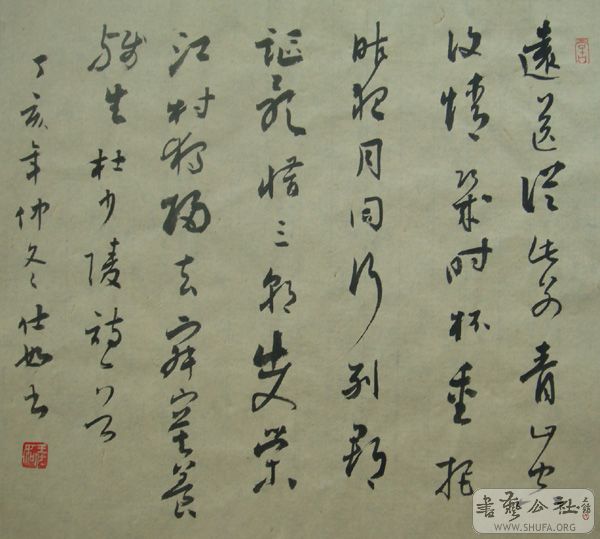 遠送從此別青山空
復情幾時杯重把
昨夜月同行列郡
謳歌惜三朝出入榮
江村獨歸去寂寞養
殘生杜少陵詩一首
丁亥年仲冬仕書
書藝公社
WWW.SHUFA.ORG